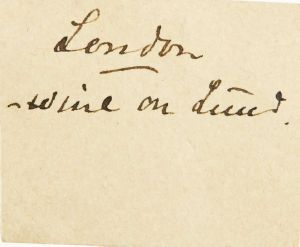 London
wine on Lund.